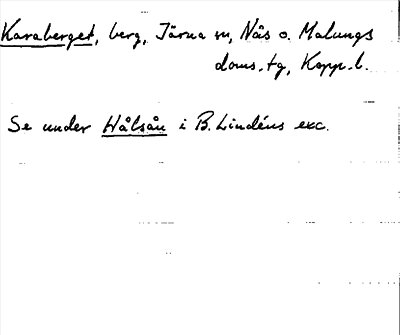 Karaberget, berg, Järna sn, Nås o. Malungs
doms.tg, Kopp.l.
Se under Hålsån i B. Lindéns exc.